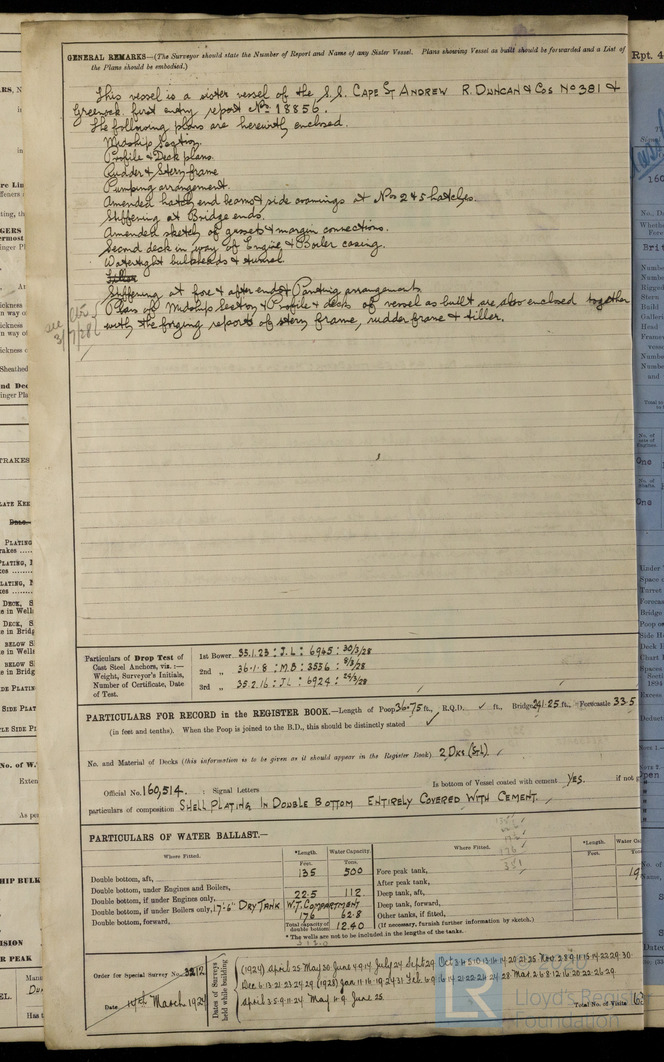 GENERAL REMARKS—(The Surveyor should state the Number of Report and Name of any Sister Vessel. Plans showing Vessel as built should be forwarded and a List of
the Plans should be embodied.)
This vessel is a sister vessel of the S.S. CAPE ST ANDREW R. DUNCAN & Cos No 381 &
Greenock first entry report No 18856.
The following plans are herewith enclosed.
Midship Section
Profile & Deck plans.
Rudder & Sternframe
Pumping arrangement.
Amended hatch end beams & side coamings at Nos 2 & 5 hatches.
Stiffening at Bridge ends.
Amended sketch of gusset & margin connections.
Second deck in way of Engine & Boiler casing.
Watertight bulkheads & tunnel
Stiffening at fore & after ends & Panting arrangement
Plans of Midship Section & Profile & decks of vessel as built are also enclosed together
with the forging reports of stern frame, rudder frame & tiller.
3/7/28
Particulars of Drop Test of
Cast Steel Anchors, viz. :—
Weight, Surveyor's Initials,
Number of Certificate, Date
of Test.
1st Bower 35.1.23 : J.L : 6945 : 30/3/28
2nd „ 36.1.8 : M.B : 3556 : 5/3/28
3rd „ 35.2.16 : J.L : 6924 : 24/3/28
PARTICULARS FOR RECORD in the REGISTER BOOK.—Length of Poop 36.75 ft., R.Q.D. ✓ ft., Bridge 241.25 ft., Forecastle 33.5
(in feet and tenths). When the Poop is joined to the B.D., this should be distinctly stated ✓
No. and Material of Decks (this information is to be given as it should appear in the Register Book) 2 Dks (Stl).
Official No. 160,514. : Signal Letters Is bottom of Vessel coated with cement Yes. if not g
particulars of composition SHELL PLATING IN DOUBLE BOTTOM ENTIRELY COVERED WITH CEMENT.
PARTICULARS OF WATER BALLAST.—
Where Fitted. *Length. Water Capacity. Where Fitted. *Length. Water Ca
Feet. Tons. Feet.
Double bottom, aft, 135 500 Fore peak tank, 19
Double bottom, under Engines and Boilers, After peak tank,
Double bottom, if under Engines only, 22.5 112 Deep tank, aft,
Double bottom, if under Boilers only, 17'-6" DRY TANK W.T. COMPARTMENT Deep tank, forward,
Double bottom, forward, 176 628 Other tanks, if fitted,
Total capacity of double bottom 1240 (If necessary, furnish further information by sketch.)
* The wells are not to be included in the lengths of the tanks.
351
Order for Special Survey No. 3212
Date 14th March 1927
Dates of Surveys held while building
(1927) April 25 May 30 June 4 9 14 July 24 Sept 29 Oct 3 6 5 10 13 16 14 20 21 25 Nov 3 8 9 11 15 14 22 29 30
Dec 6 13 21 23 24 29 (1928) Jan 11 16 19 24 31 Feb 6 9 14 21 22 26 24 28 Mar 2 6 8 12 16 20 22 26 29
April 3 5 9 11 24 May 1 9 June 25.
Total No. of Visits 63
LR
Lloyd's Register
Foundation